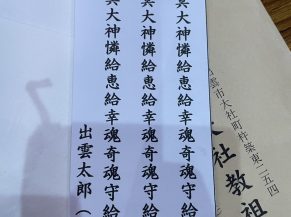 兵大神憐給恵給幸魂奇魂守給
兵大神憐給恵給幸魂奇魂守給
兵大神憐給恵給幸魂奇魂守給
出雲太郎(
出雲市大社町杵築東二五四
大社教祖